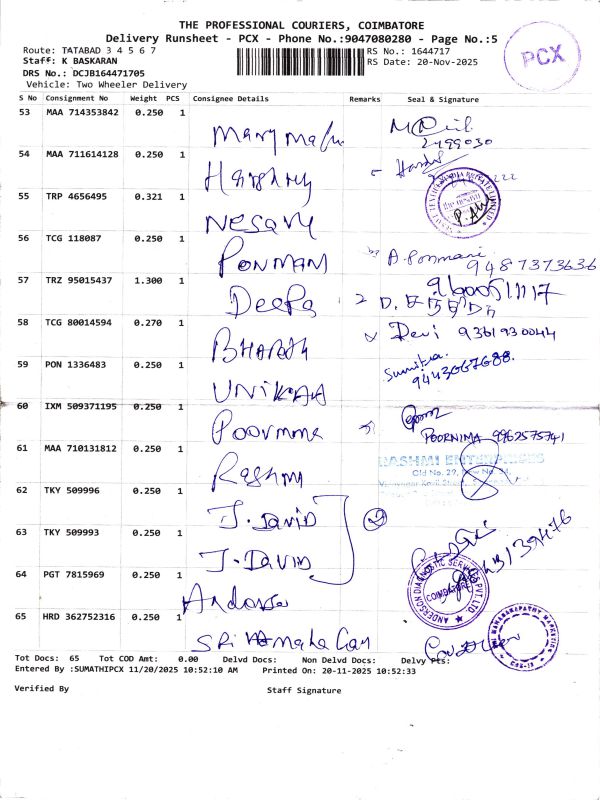 THE PROFESSIONAL COURIERS, COIMBATORE
Delivery Runsheet - PCX - Phone No.:9047080280 - Page No.:5
Route: TATABAD 3 4 5 6 7
RS No.: 1644717
Staff: K BASKARAN
RS Date: 20-Nov-2025
PCX
DRS No.: DCJB164471705
Vehicle: Two Wheeler Delivery
S No Consignment No Weight PCS Consignee Details Remarks Seal & Signature
53 MAA 714353842 0.250 1
2499030
54 MAA 711614128 0.250 1
55 TRP 4656495 0.321 1 Nesavy
56 TCG 118087 0.250 1 PONMANI A. Ponmani
9487373636
57 TRZ 95015437 1.300 1 Deepa
9600051117
58 TCG 80014594 0.270 1 BHARATH Devi 9361930044
59 PON 1336483 0.250 1 Sumitra.
9443067688.
60 IXM 509371195 0.250 1 Poornima
POORNIMA 9962575741
61 MAA 710131812 0.250 1 Rashmi
RASHMI ENTERPRISES
Old No. 29, New No.
62 TKY 509996 0.250 1 J. David
63 TKY 509993 0.250 1 J. David
64 PGT 7815969 0.250 1
ANDERSON DIAGNOSTIC SERVICES PVT LTD
COIMBATORE
65 HRD 362752316 0.250 1
Tot Docs: 65 Tot COD Amt: 0.00 Delvd Docs: Non Delvd Docs: Delvy Pts:
Entered By :SUMATHIPCX 11/20/2025 10:52:10 AM Printed On: 20-11-2025 10:52:33
Verified By Staff Signature